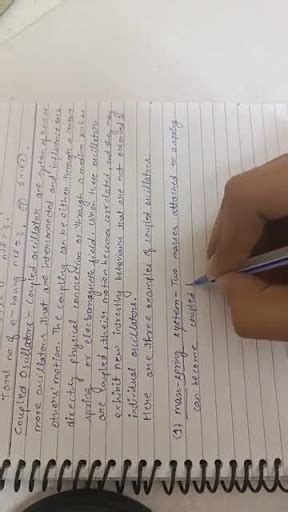 Total no of exchange
Coupled Oscillators - Coupled oscillators are system of two or
more oscillators that are interconnected and influence each
others motion. The coupling can be either through a
directly physical connection or through a medium such as
spring or electromagnetic field. When these oscillators
are coupled, their motion become correlated, and they may
exhibit new intresting behaviours that are not
individual oscillators.
Here are three examples of coupled oscillators.
(1) mass-spring system - Two masses attached to a spring
can become coupled